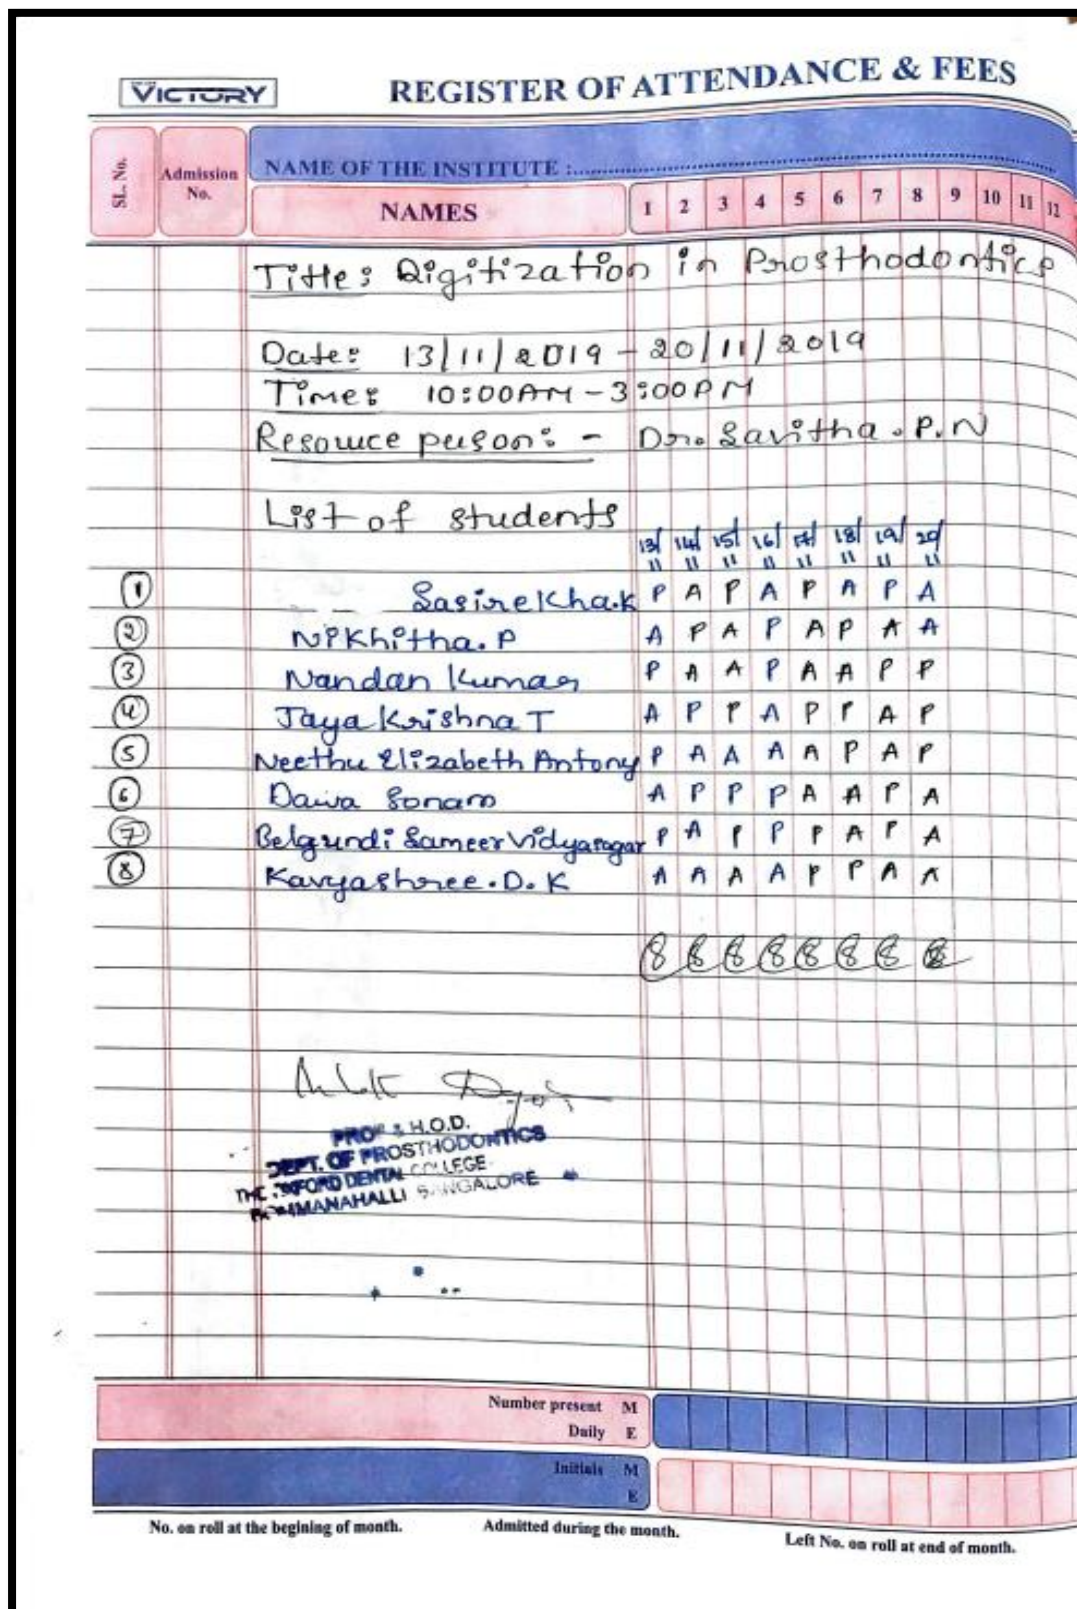 VICTORY REGISTER OF ATTENDANCE & FEES
SL. No. Admission No. NAME OF THE INSTITUTE :
NAMES 1 2 3 4 5 6 7 8 9 10 11 12
Title: Digitization in Prosthodontics
Date: 13/11/2019 - 20/11/2019
Time: 10:00AM - 3:00PM
Resource person: - Dr. Savitha . P. N
List of students
13/11 14/11 15/11 16/11 17/11 18/11 19/11 20/11
1 Sasirekha.K P A P A P A P A
2 Nikhitha. P A P A P A P A A
3 Nandan Kumar P A A P A A P P
4 Jaya Krishna T A P P A P P A P
5 Neethu Elizabeth Antony P A A A A P A P
6 Dawa Sonam A P P P A A P A
7 Belgundi Sameer Vidyasagar P A P P P A P A
8 Kavyashree. D. K A A A A P P A A
8 8 8 8 8 8 8 8
PROF & H.O.D.
DEPT. OF PROSTHODONTICS
THE OXFORD DENTAL COLLEGE
BOMMANAHALLI BANGALORE
Number present M
Daily E
Initials M
E
No. on roll at the begining of month. Admitted during the month. Left No. on roll at end of month.